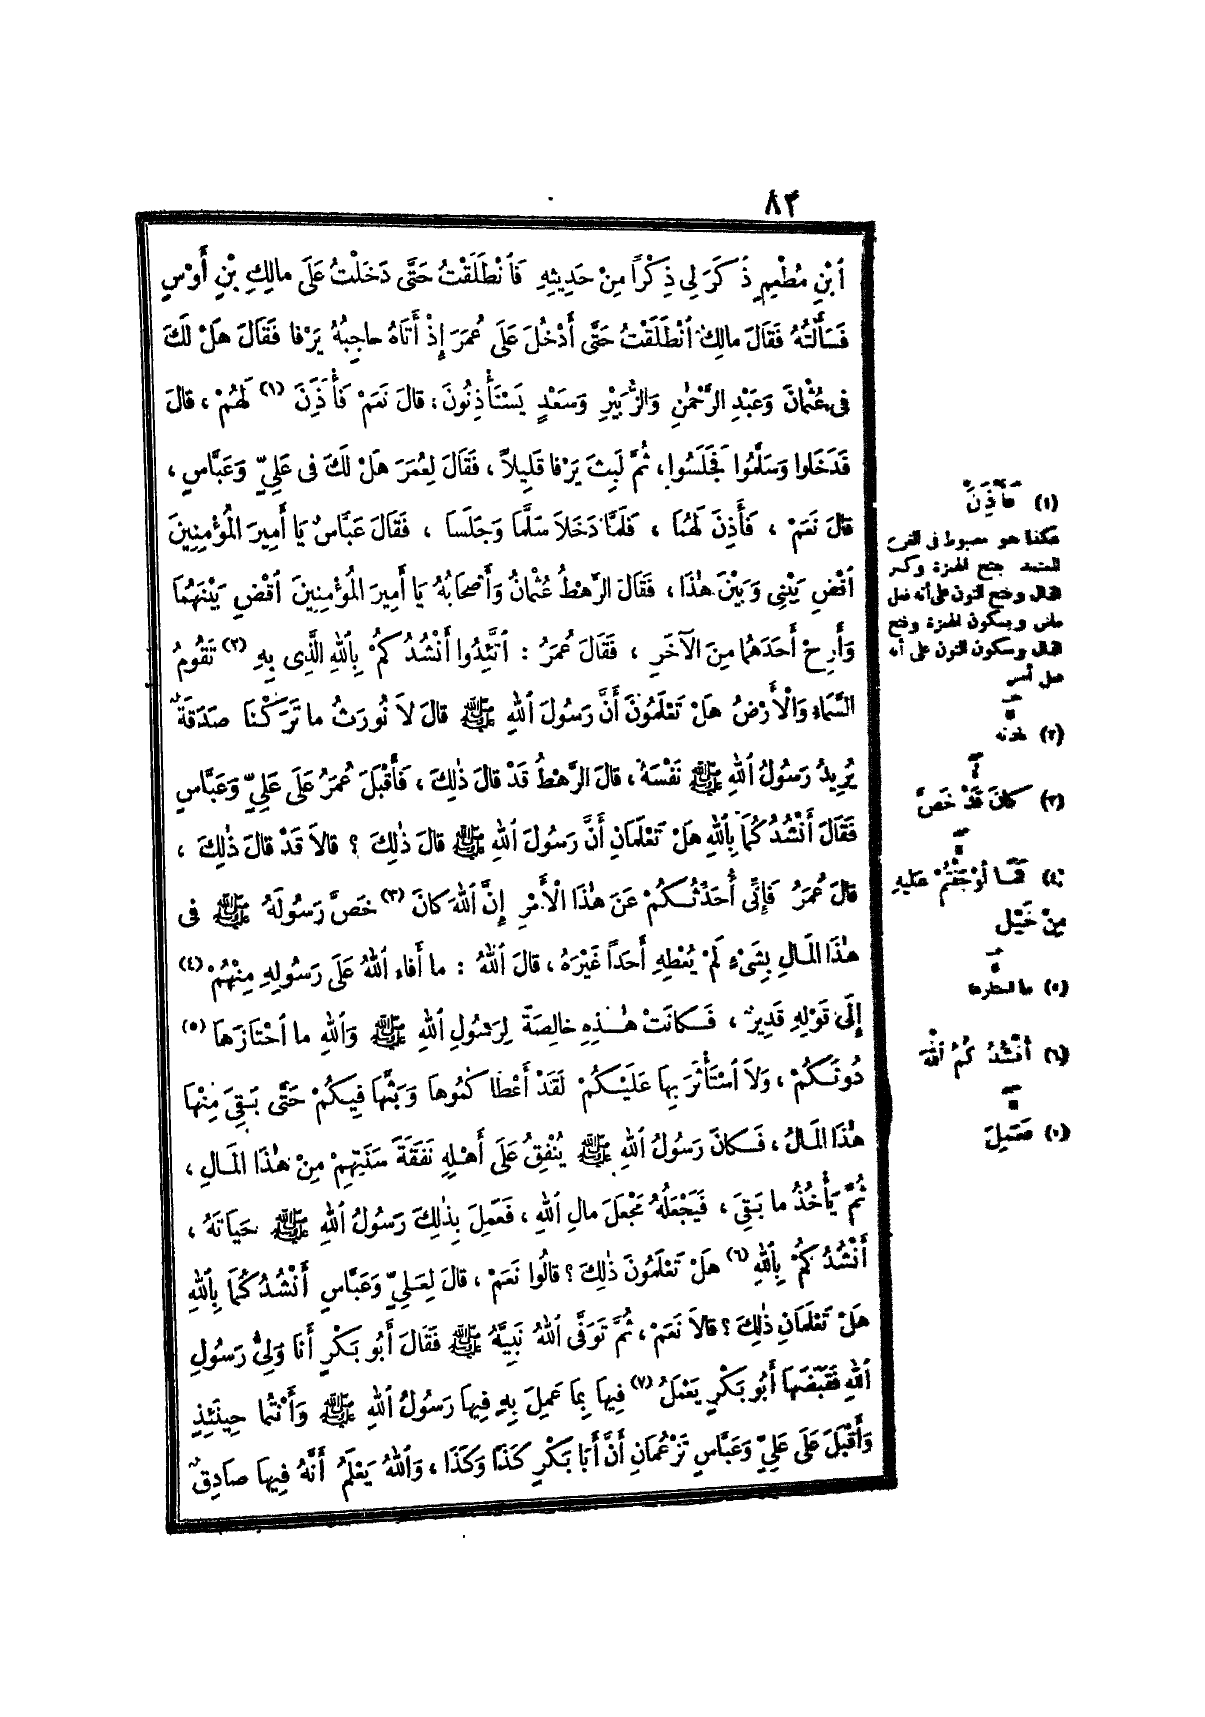 ٨٣
ٱبْنِ مُطْعِمٍ ذَكَرَ لِي ذِكْرًا مِنْ حَدِيثِهِ فَٱنْطَلَقْتُ حَتَّى دَخَلْتُ عَلَى مالِكِ بْنِ أَوْسٍ
فَسَأَلْتُهُ فَقَالَ مالِكٌ ٱنْطَلَقْتُ حَتَّى أَدْخُلَ عَلَى عُمَرَ إِذْ أَتَاهُ حاجِبُهُ يَرْفا فَقَالَ هَلْ لَكَ
فى عُثْمانَ وَعَبْدِ الرَّحْمٰنِ وَالزُّبَيْرِ وَسَعْدٍ يَسْتَأْذِنُونَ، قالَ نَعَمْ فَأَذِنَ (١) لَهُمْ، قالَ
فَدَخَلوا وَسَلَّمُوا فَجَلَسُوا، ثُمَّ لَبِثَ يَرْفا قَلِيلاً، فَقَالَ لِعُمَرَ هَلْ لَكَ فى عَلِيٍّ وَعَبَّاسٍ،
قالَ نَعَمْ، فَأَذِنَ لَهُمَا، فَلَمَّا دَخَلاَ سَلَّمَا وَجَلَسَا، فَقَالَ عَبَّاسٌ يَا أَمِيرَ الْمُؤْمِنِينَ
ٱقْضِ بَيْنِى وَبَيْنَ هٰذَا، فَقَالَ الرَّهْطُ عُثْمانُ وَأَصْحَابُهُ يَا أَمِيرَ الْمُؤْمِنِينَ ٱقْضِ بَيْنَهُمَا
وَأَرِحْ أَحَدَهُمَا مِنَ الآخَرِ، فَقَالَ عُمَرُ : ٱتَّئِدُوا أَنْشُدُكُمْ بِٱللهِ الَّذِى بِهِ (٢) تَقُومُ
السَّمَاءُ وَالْأَرْضُ هَلْ تَعْلَمُونَ أَنَّ رَسُولَ ٱللهِ ﷺ قالَ لاَ نُورَثُ ما تَرَكْنَا صَدَقَةٌ
يُرِيدُ رَسُولُ ٱللهِ ﷺ نَفْسَهُ، قالَ الرَّهْطُ قَدْ قالَ ذٰلِكَ، فَأَقْبَلَ عُمَرُ عَلَى عَلِيٍّ وَعَبَّاسٍ
فَقَالَ أَنْشُدُكُمَا بِٱللهِ هَلْ تَعْلَمَانِ أَنَّ رَسُولَ ٱللهِ ﷺ قالَ ذٰلِكَ ؟ قالاَ قَدْ قالَ ذٰلِكَ،
قالَ عُمَرُ فَإِنِّى أُحَدِّثُكُمْ عَنْ هٰذَا الْأَمْرِ إِنَّ ٱللهَ كانَ (٣) خَصَّ رَسُولَهُ ﷺ فى
هٰذَا الْمَالِ بِشَىْءٍ لَمْ يُعْطِهِ أَحَداً غَيْرَهُ، قالَ ٱللهُ : ما أَفاء ٱللهُ عَلَى رَسُولِهِ مِنْهُمْ (٤)
إِلَى قَوْلِهِ قَدِيرٌ، فَكانَتْ هٰذِهِ خالِصَةً لِرَسُولِ ٱللهِ ﷺ وَٱللهِ ما ٱحْتَازَهَا (٥)
دُونَكُمْ، وَلاَ ٱسْتَأْثَرَ بِهَا عَلَيْكُمْ لَقَدْ أَعْطَاكُمُوهَا وَبَثَّهَا فِيكُمْ حَتَّى بَقِيَ مِنْهَا
هٰذَا الْمَالُ، فَكانَ رَسُولُ ٱللهِ ﷺ يُنْفِقُ عَلَى أَهْلِهِ نَفَقَةَ سَنَتِهِمْ مِنْ هٰذَا الْمَالِ،
ثُمَّ يَأْخُذُ ما بَقِيَ، فَيَجْعَلُهُ مَجْعَلَ مالِ ٱللهِ، فَعَمِلَ بِذٰلِكَ رَسُولُ ٱللهِ ﷺ حَيَاتَهُ،
أَنْشُدُكُمْ بِٱللهِ (٦) هَلْ تَعْلَمُونَ ذٰلِكَ ؟ قالُوا نَعَمْ، قالَ لِعَلِيٍّ وَعَبَّاسٍ أَنْشُدُكُمَا بِٱللهِ
هَلْ تَعْلَمَانِ ذٰلِكَ ؟ قالاَ نَعَمْ، ثُمَّ تَوَفَّى ٱللهُ نَبِيَّهُ ﷺ فَقَالَ أَبُو بَكْرٍ أَنَا وَلِيُّ رَسُولِ
ٱللهِ فَقَبَضَهَا أَبُو بَكْرٍ يَعْمَلُ (٧) فِيهَا بِمَا عَمِلَ بِهِ فِيهَا رَسُولُ ٱللهِ ﷺ وَأَنْتُمَا حِينَئِذٍ
وَأَقْبَلَ عَلَى عَلِيٍّ وَعَبَّاسٍ تَزْعُمَانِ أَنَّ أَبَا بَكْرٍ كَذَا وَكَذَا، وَٱللهُ يَعْلَمُ أَنَّهُ فِيهَا صادِقٌ
(١) فَأَذِنَ
هكذا هو مضبوط فى الفرع
المعتمد بفتح الهمزة وكسر
الذال وفتح النون على أنه فعل
ماض وبسكون الهمزة وفتح
الذال وسكون النون على أنه
فعل أمر
(٢)
(٣) كانَ قَدْ خَصَّ
(٤) فَمَا أَوْجَفْتُمْ عَلَيْهِ
مِنْ خَيْلٍ
(٥) ما
(٦) أَنْشُدُكُمُ ٱللهَ
فَعَمِلَ